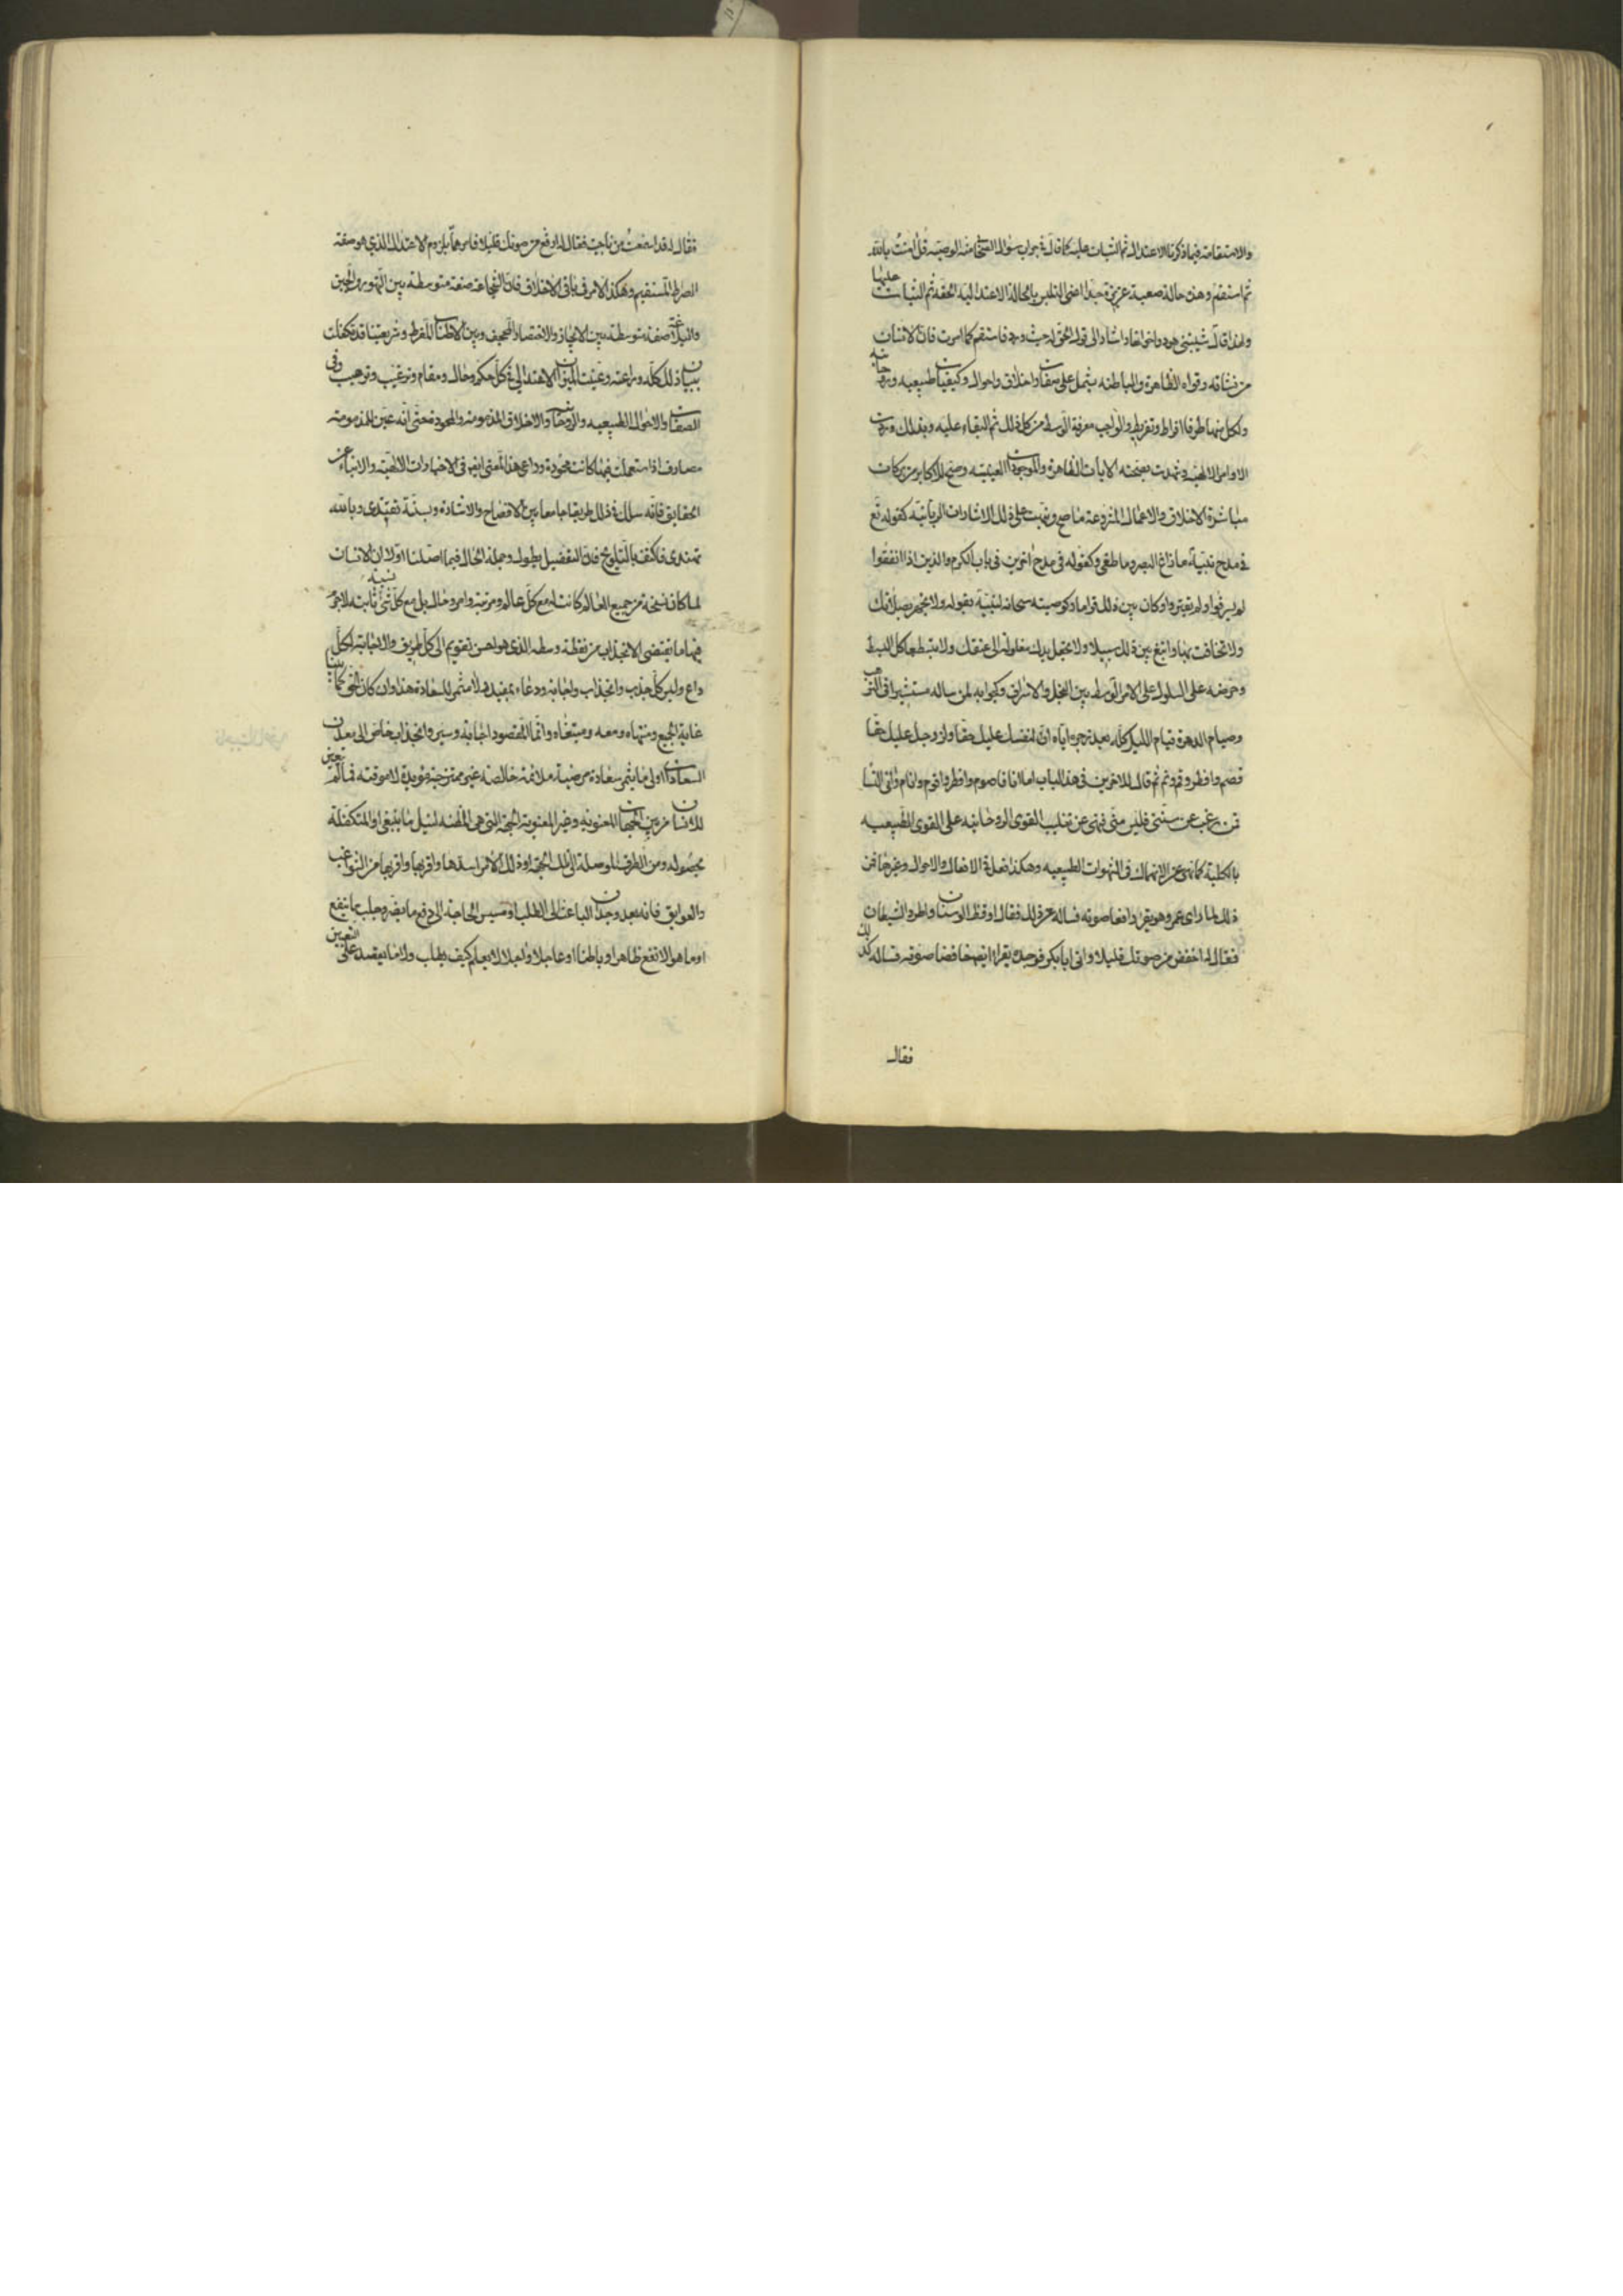 والاستقامة فيما ذكرنا الاعتدال ثم الثبات عليه كما قال في جواب سؤال الصحابي منه الوصية قل امنت بالله
ثم استقم وهذه حالة صعبة عزيزة جدا اعنى التلبس بالحالة الاعتدالية الحقة ثم الثبات عليها
ولهذا قال شيبتنى هود واخواتها واشار الى قول الحق له حيث ورد فاستقم كما امرت فان الانسان
من نشاته وقواه الظاهرة والباطنه يشتمل على صفات واخلاق واحوال وكيفيات طبيعيه وروحانيه
ولكل منها طرفا افراط وتفريط والواجب معرفة الوسط من كل ذلك ثم البقاء عليه وبذلك وردت
الاوامر الالهية وشهدت بصحته الايات الظاهرة والموجودات العينيه وصح للاكابر من بركات
مباشرة الاخلاق والاعمال المشروعة ما صح ونبهت على ذلك الاشارات الربانية كقوله تع
في مدح نبيه ما زاغ البصر وما طغى وكقوله فى مدح اخرين فى باب الكرم والذين اذا انفقوا
لم يسرفوا ولم يقتروا وكان بين ذلك قواما وكوصيته سبحانه لنبيه بقوله ولا تجهر بصلاتك
ولا تخافت بها وابتغ بين ذلك سبيلا ولا تجعل يدك مغلولة الى عنقك ولا تبسطها كل البسط
وحرضه على السلوك على الامر الوسط بين البخل والاسراف وكجوابه لمن ساله مستشيرا فى الترهب
وصيام الدهر وقيام الليل كله بعد زجره اياه ان لنفسك عليك حقا ولزوجك عليك حقا
فصم وافطر وقم ونم ثم قال للاخرين فى هذا الباب اما انا فاصوم وافطر واقوم وانام واتى النسا
فمن رغب عن سنتى فليس منى فنهى عن تغليب القوى الروحانيه على القوى الطبيعيه
بالكلية كما نهى عن الانهماك فى الشهوات الطبيعيه وهكذا فعل في الافعال والاحوال وغيرها فمن
ذلك لما راى عمر وهو يقرا رافعا صوته فساله عن ذلك فقال اوقظ الوسنان واطرد الشيطان
فقال له اخفض من صوتك قليلا واتى ابا بكر فوجده يقرا ايضا خافضا صوته فساله كذلك
فقال
فقال لقد اسمعت من ناجيت فقال له ارفع من صوتك قليلا فامرهما بلزوم الاعتدال الذي هو صفة
الصراط المستقيم وهكذا الامر فى باقى الاخلاق فان الشجاعة صفة متوسطة بين التهور والجبن
والبلاغة صفة متوسطة بين الايجاز والاختصار المجحف وبين الاطناب المفرط وشريعتنا قد تكفلت
ببيان ذلك كله وراعته وعينت الميزان الاعتدالي في كل حكم وحال ومقام وترغيب وترهيب وفى
الصفات والاحوال الطبيعيه والروحانية والاخلاق المذمومة والمحمودة حتى انه عين للمذمومة
مصارف اذا استعملت فيها كانت محمودة وراعى هذا المعنى ايضا فى الاخبارات الالهية والانباء عن
الحقايق فانه سلك في ذلك طريقا جامعا بين الافصاح والاشارة وبسنته نقتدى وبالله
نهتدى فاكتف بالتلويح فان التفصيل يطول وجملة الحال فيما اصلنا اولا ان الانسان
لما كان نسخة من جميع العالم كانت له مع كل عالم ومرتبة وامر وحال بل مع كل شى نسبة ثابتة لا جرم
فيها ما يقتضى الانجذاب من نقطة وسطه الذى هو احسن تقويم الى كل طرف والاجابة لكل
داع وليس كل جذب وانجذاب واجابة ودعاء بمفيد ولا مثمر للسعادة هذا وان كان الحق كما بينا
غاية الجميع ومنتهاه ومعه ومبتغاه وانما المقصود اجابة وسير وانجذاب خاص الى معدن
السعادات اولى ما يثمر سعادة مرضية ملائمة خالصة غير ممتزجة مؤبدة لا موقتة فما لم يتعين
للانسان من بين الجهات المعنوية وغير المعنوية الجهة التى هى المظنة لنيل ما ينبغى او المتكفلة
بحصوله ومن الطرق الموصلة الى تلك الجهة او ذلك الامر اسدها واقربها واقربها من الشواغب
والعوايق فانه بعد وجدان الباعث الى الطلب او مسيس الحاجة الى دفع ما يضر وجلب ما ينفع
او ما هو الانفع ظاهرا وباطنا او عاجلا واجلا لا يعلم كيف يطلب ولا ما يقصد على التعيين